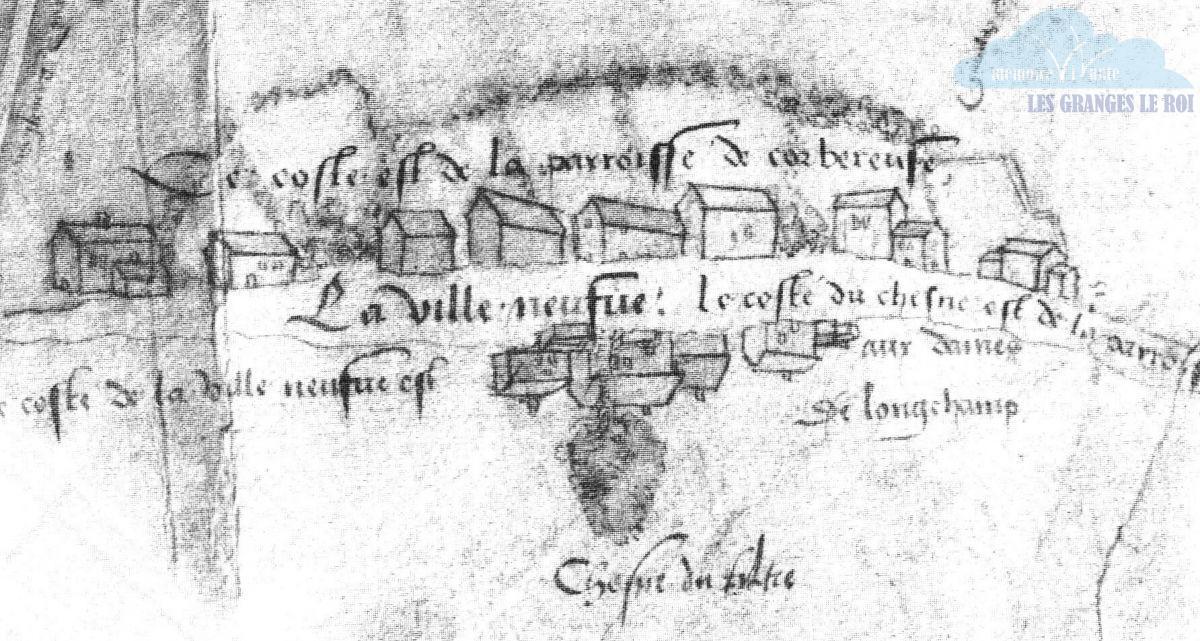 memoire vivante
LES GRANGES LE ROI
Le coste est de la parroisse de corbereuse
La ville neufue : le coste du chesne est de la parrois
aux dames
coste de la ville neufue est
de longchamp
Chesne du